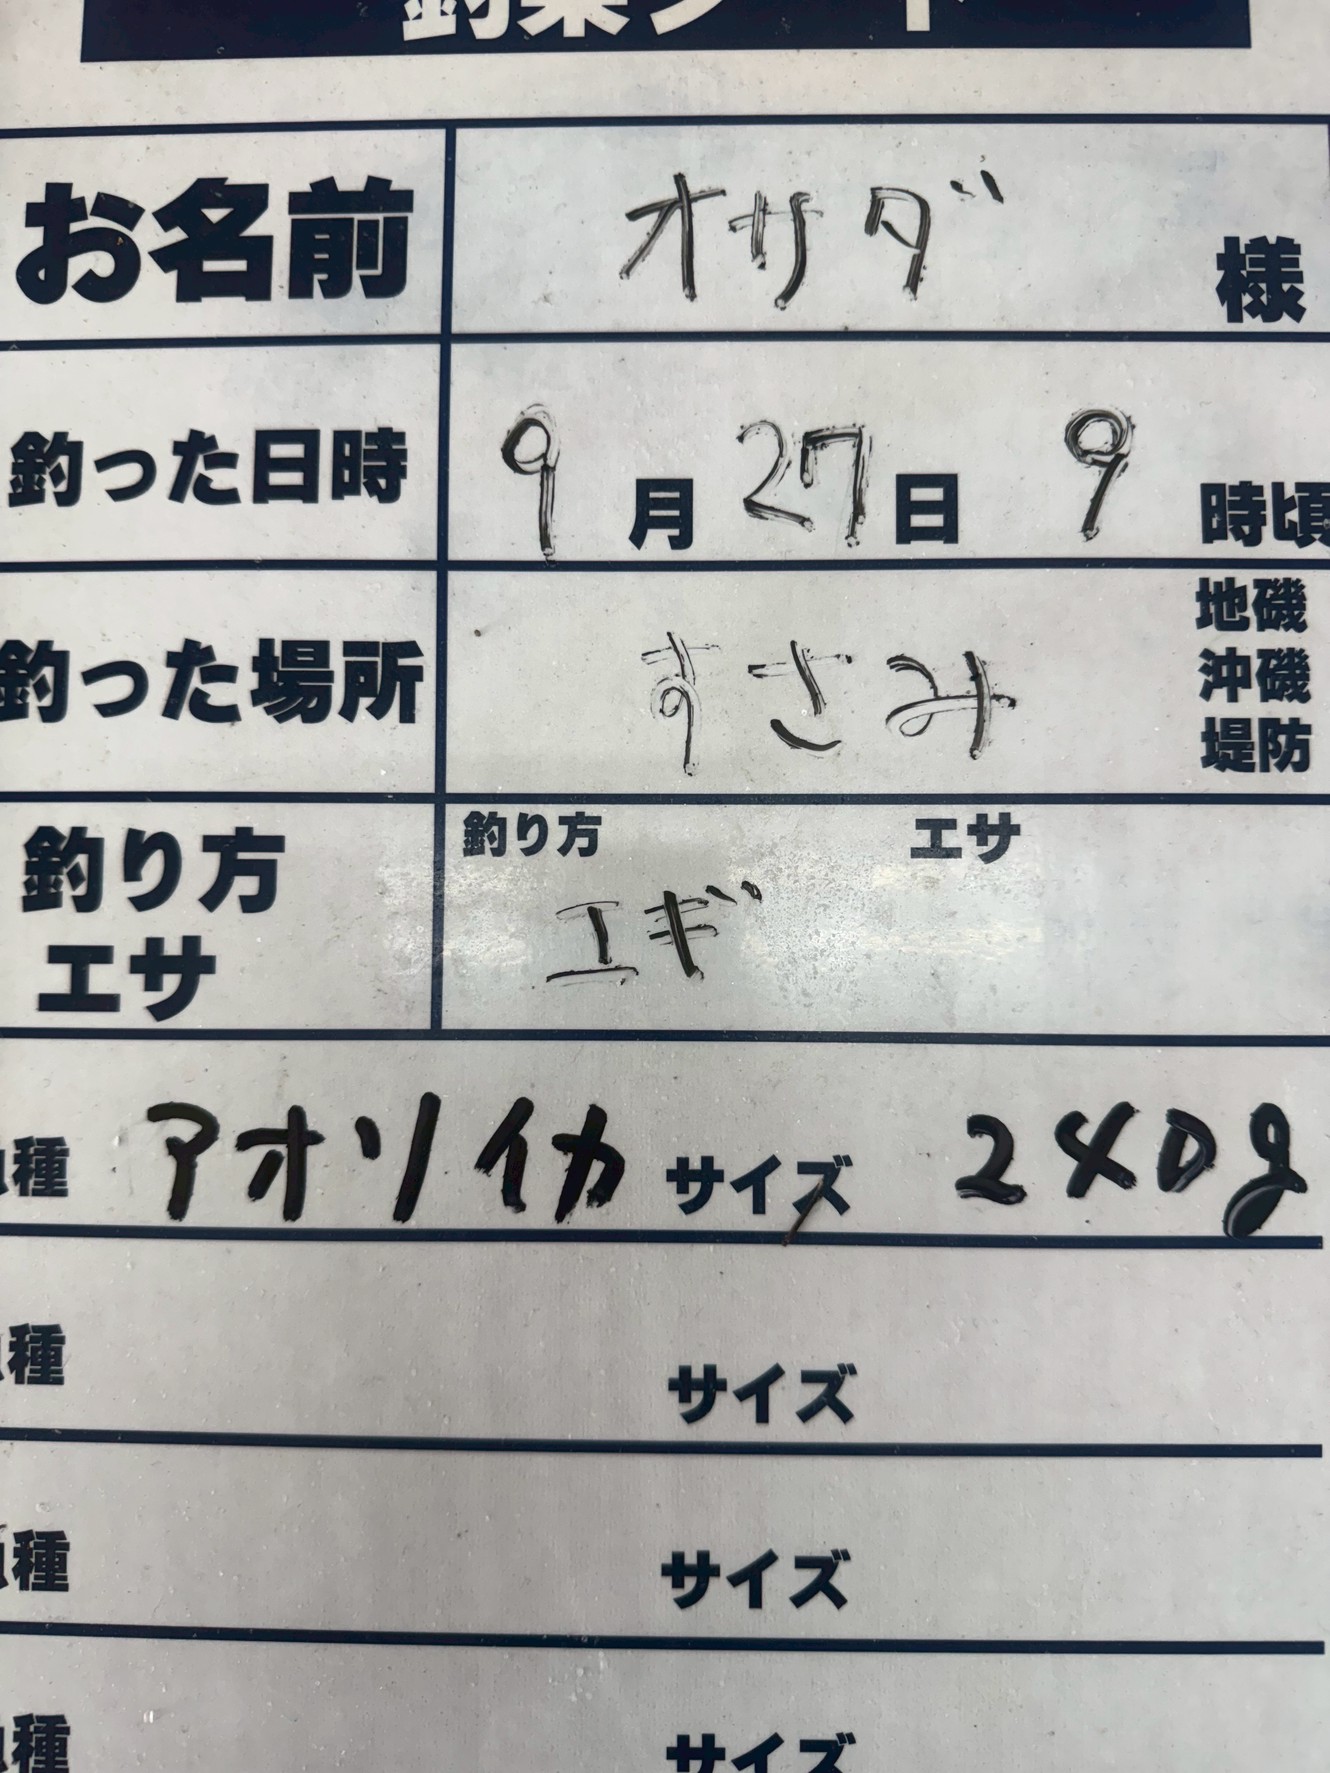 釣果シート
お名前 オサダ 様
釣った日時 9月27日 9時頃
釣った場所 すさみ 地磯
沖磯
堤防
釣り方 エサ
釣り方
エサ
エギ
魚種 アオリイカ サイズ 240g
魚種 サイズ
魚種 サイズ
魚種 サイズ